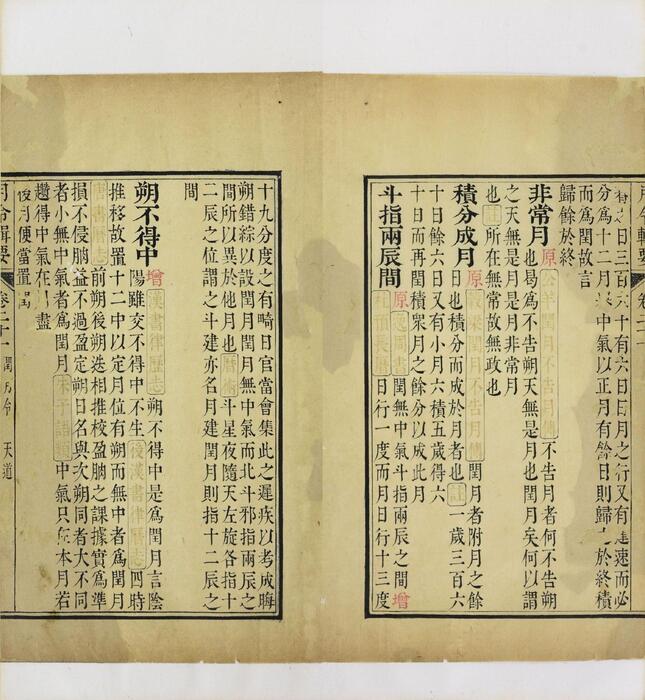 月令輯要 卷二十一
之日三百六十有六日日月之行又有遲速而必
分爲十二月 中氣以正月有餘日則歸之於終積
而爲閏故言
歸餘於終
非常月 原 公羊閏月不告月傳 不告月者何不告朔
也曷爲不告朔天無是月也閏月矣何以謂
之天無是月是月非常月
也 註 所在無常故無政也
積分成月 原 穀梁閏月不告月傳 閏月者附月之餘
日也積分而成於月者也 註 一歲三百六
十日餘六日又有小月六積五歲得六
十日而再閏積衆月之餘分以成此月
斗指兩辰間 原 逸周書 閏無中氣斗指兩辰之間 增
杜預長曆 日行一度而月日行十三度
十九分度之有畸日官當會集此之遲疾以考成晦
朔錯綜以設閏月閏月無中氣而北斗邪指兩辰之
間所以異於他月也 曆術 斗星夜隨天左旋各指十
二辰之位謂之斗建亦名月建閏月則指十二辰之
間
朔不得中 增 漢書律歷志 朔不得中是爲閏月言陰
陽雖交不得中不生 後漢書律曆志 四時
推移故置十二中以定月位有朔而無中者爲閏月
書曆志 前朔後朔迭相推校盈朒之課據實爲準
損不侵朒益不過盈定朔日名與次朔同者大不同
者小無中氣者爲閏月 朱子語類 中氣只在本月若
趲得中氣在月盡
後月便當置閏
月令輯要 卷二十一 閏月令 天道